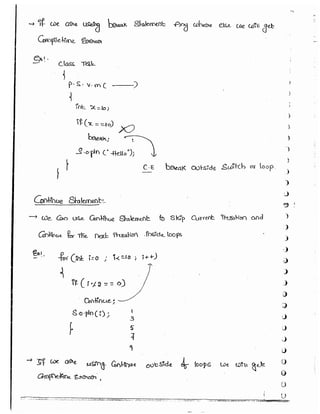 → If we are using break Statement Any where else we will get
CompileTime Error
Ex:-
class Test
{
P. S. v. m( ——)
{
int x=10;
if(x==10)
break;
S.o.pln("Hello");
}
}
C.E break outside switch or loop.
Continue Statement:-
→ we can use Continue Statement to skip current iteration and
Continue for the next iteration inside loops
Ex:- for (int i=0 ; i<=10 ; i++)
{
if (i%2 == 0)
Continue;
S.o.pln(i);
}
1
3
5
7
9
→ If we are using Continue outside of loops we will get
CompileTime Error,